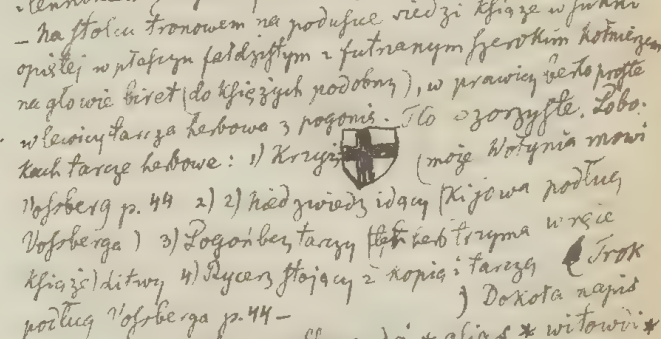 – na stolcu tronowem na poduszce siedzi książe w sukni
opiętej w płaszczu fałdzistym z futrzanym szerokim kołnierzem
na głowie biret (do księżych podobny), w prawicy berło proste
w lewicy tarcza herbowa z pogonią. Tło wzorzyste. Z obo-
kach tarcze herbowe: 1) Krzyż (może Wołynia mowi
Vossberg p. 44 2) 2) niedzwiedz idący (Kijowa podług
Vossberga) 3) Pogoń bez tarczy trzyma w ręce
książe) Litwy 4) Rycerz stojący z kopią i tarczą (Trok
podług Vossberga p. 44 – ) Dokoła napis
* alias * witowdi *